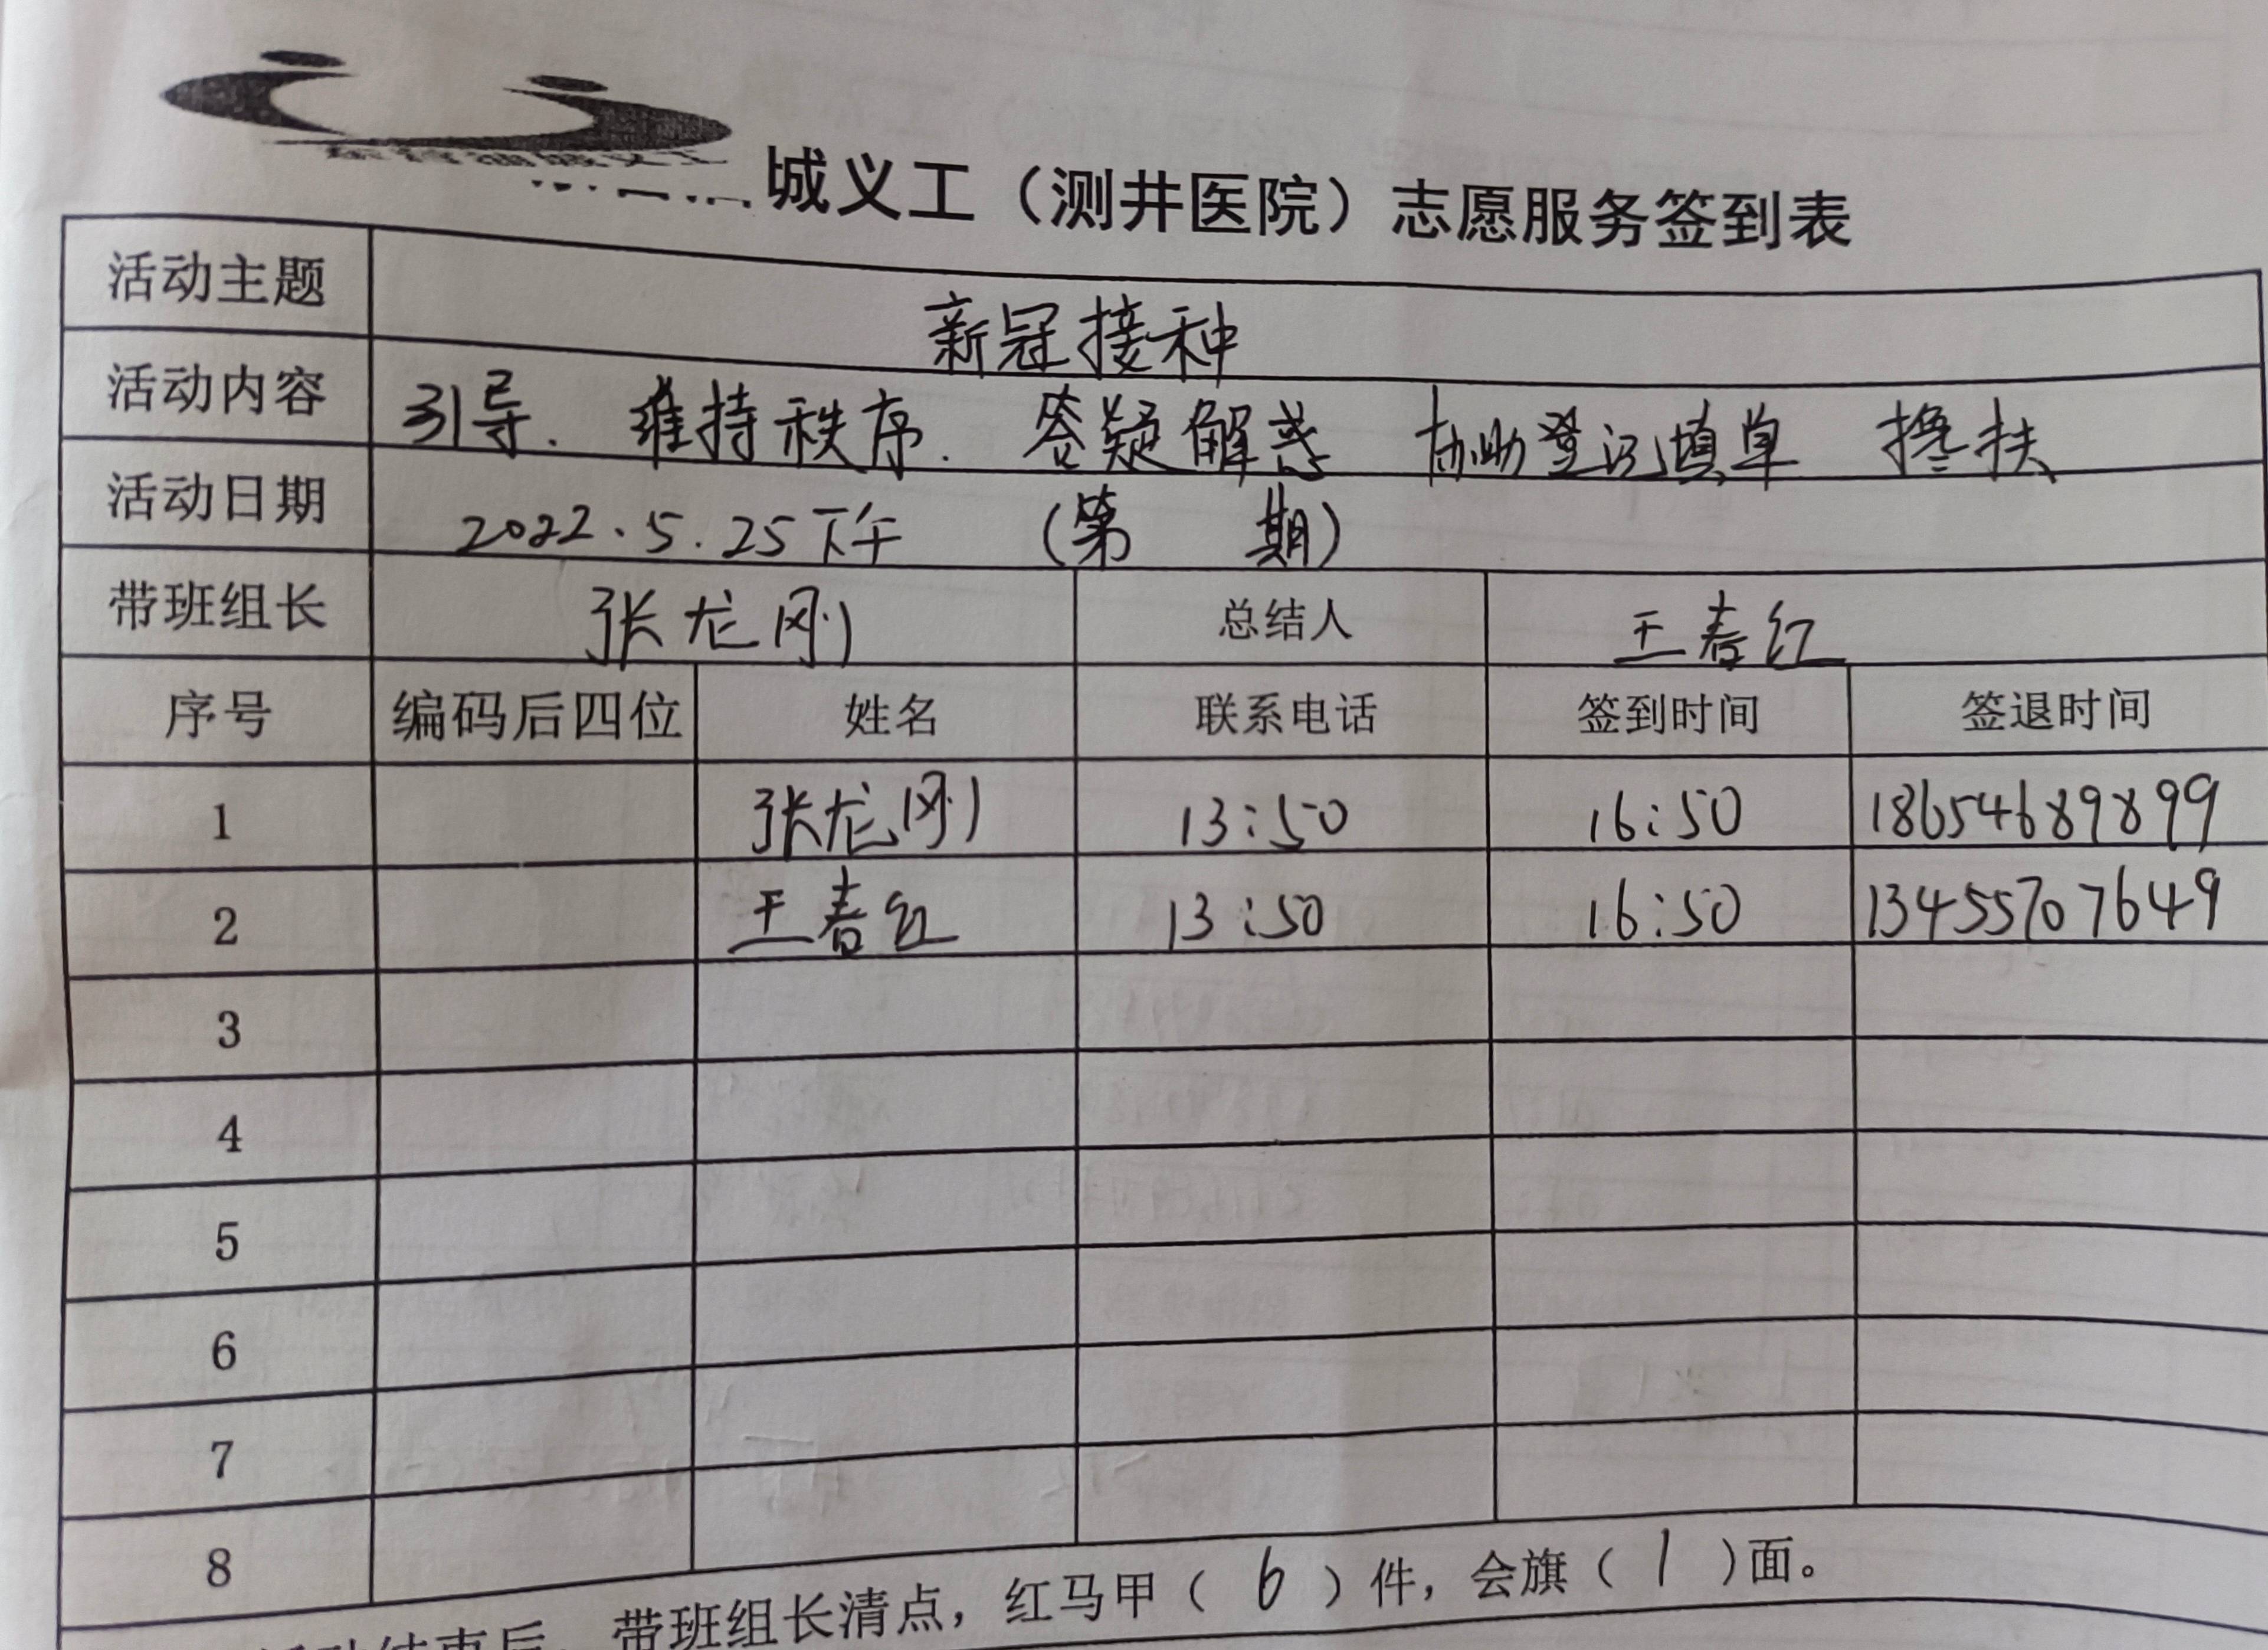 城义工（测井医院）志愿服务签到表
活动主题 新冠接种
活动内容 引导. 维持秩序. 答疑解惑 协助登记填单 搀扶
活动日期 2022.5.25下午 (第 期)
带班组长 张龙刚 总结人 王春红
序号 编码后四位 姓名 联系电话 签到时间 签退时间
1 张龙刚 13:50 16:50 18654689899
2 王春红 13:50 16:50 13455707649
3
4
5
6
7
8
结束后，带班组长清点，红马甲（6）件，会旗（1）面。